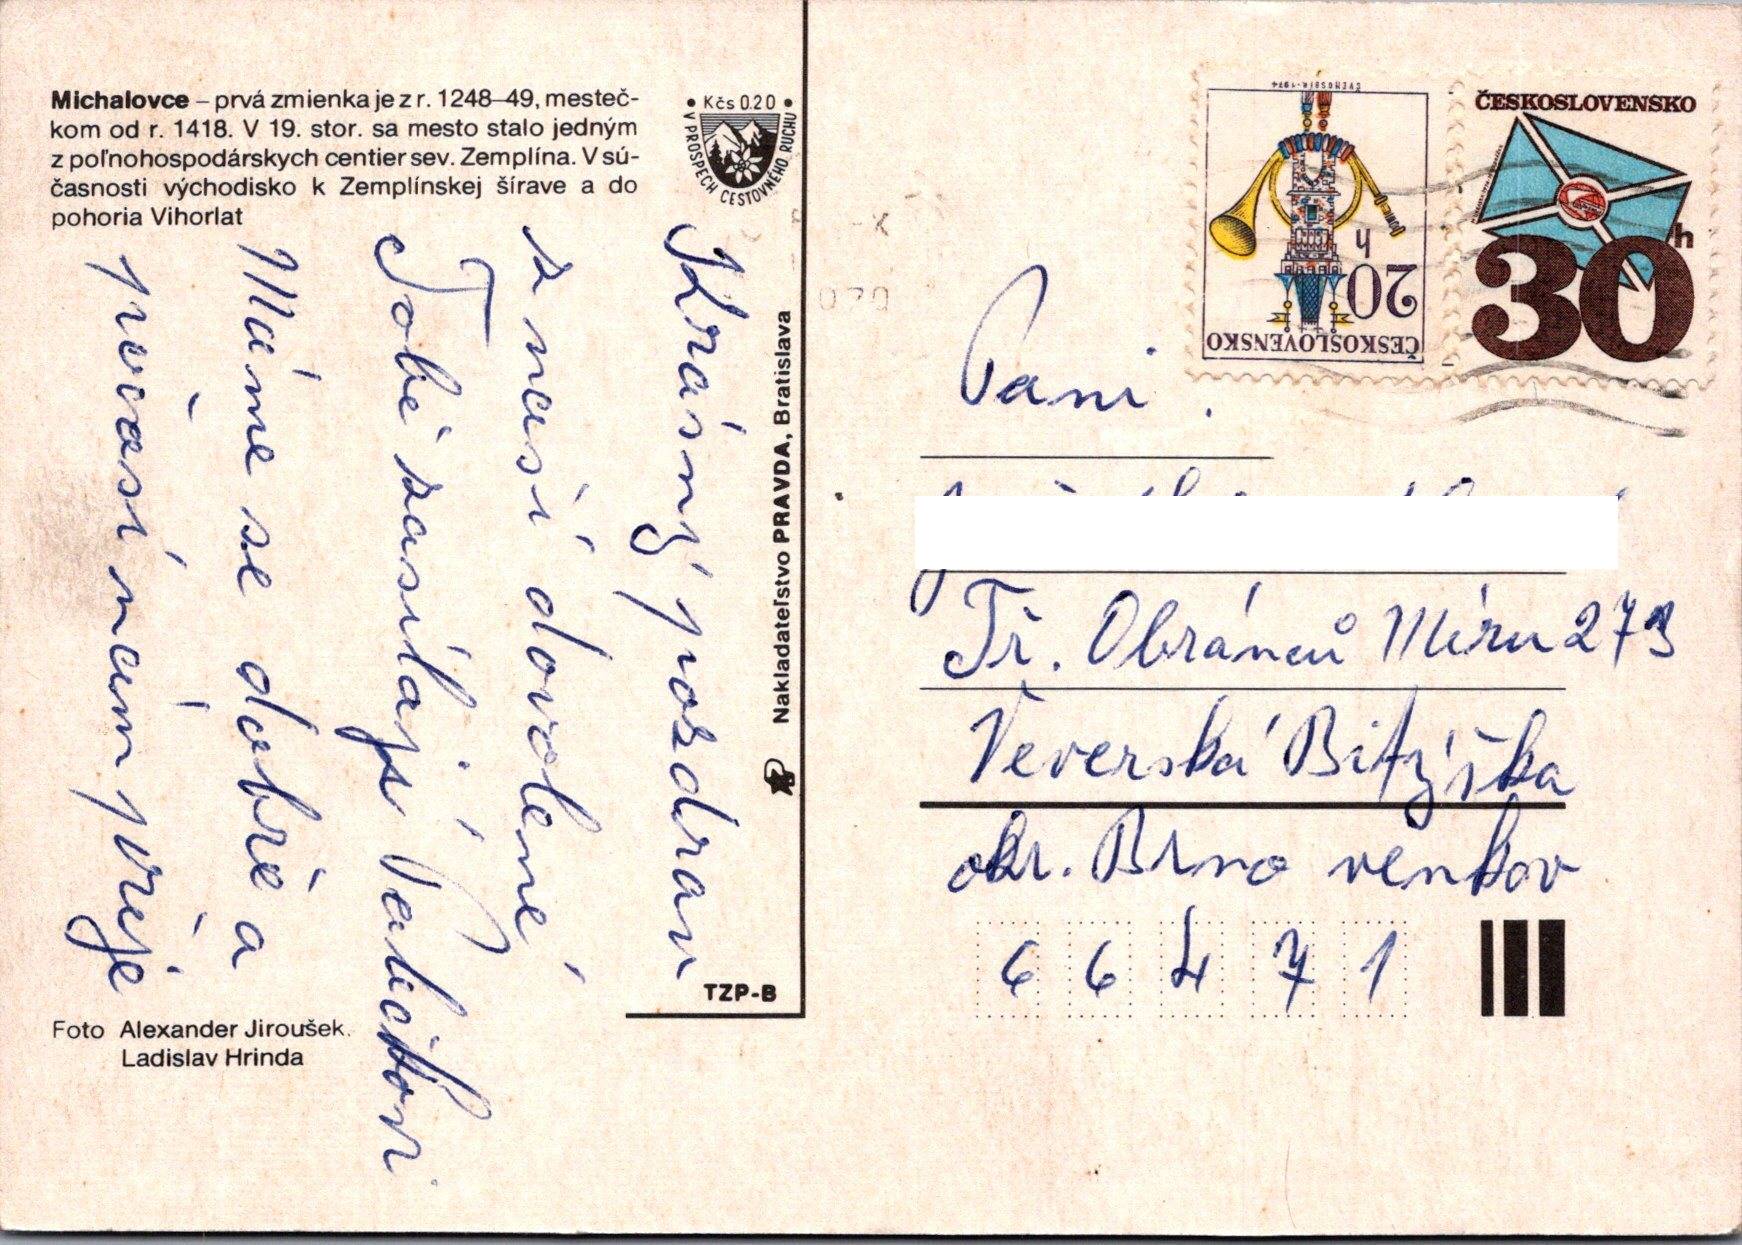 Michalovce – prvá zmienka je z r. 1248–49, mesteč-
kom od r. 1418. V 19. stor. sa mesto stalo jedným
z poľnohospodárskych centier sev. Zemplína. V sú-
časnosti východisko k Zemplínskej šírave a do
pohoria Vihorlat
• Kčs 0.20 •
V PROSPECH CESTOVNÉHO RUCHU
Krásný pozdrav
z naší dovolené
Tobě zasílají
Máme se dobře a
počasí nám přeje
Nakladateľstvo PRAVDA, Bratislava
TZP-B
Foto Alexander Jiroušek.
Ladislav Hrinda
ČESKOSLOVENSKO
20 h
ČESKOSLOVENSKO
30 h
Paní
Tř. Obránců Míru 273
Veverská Bitýška
okr. Brno venkov
6 6 4 7 1